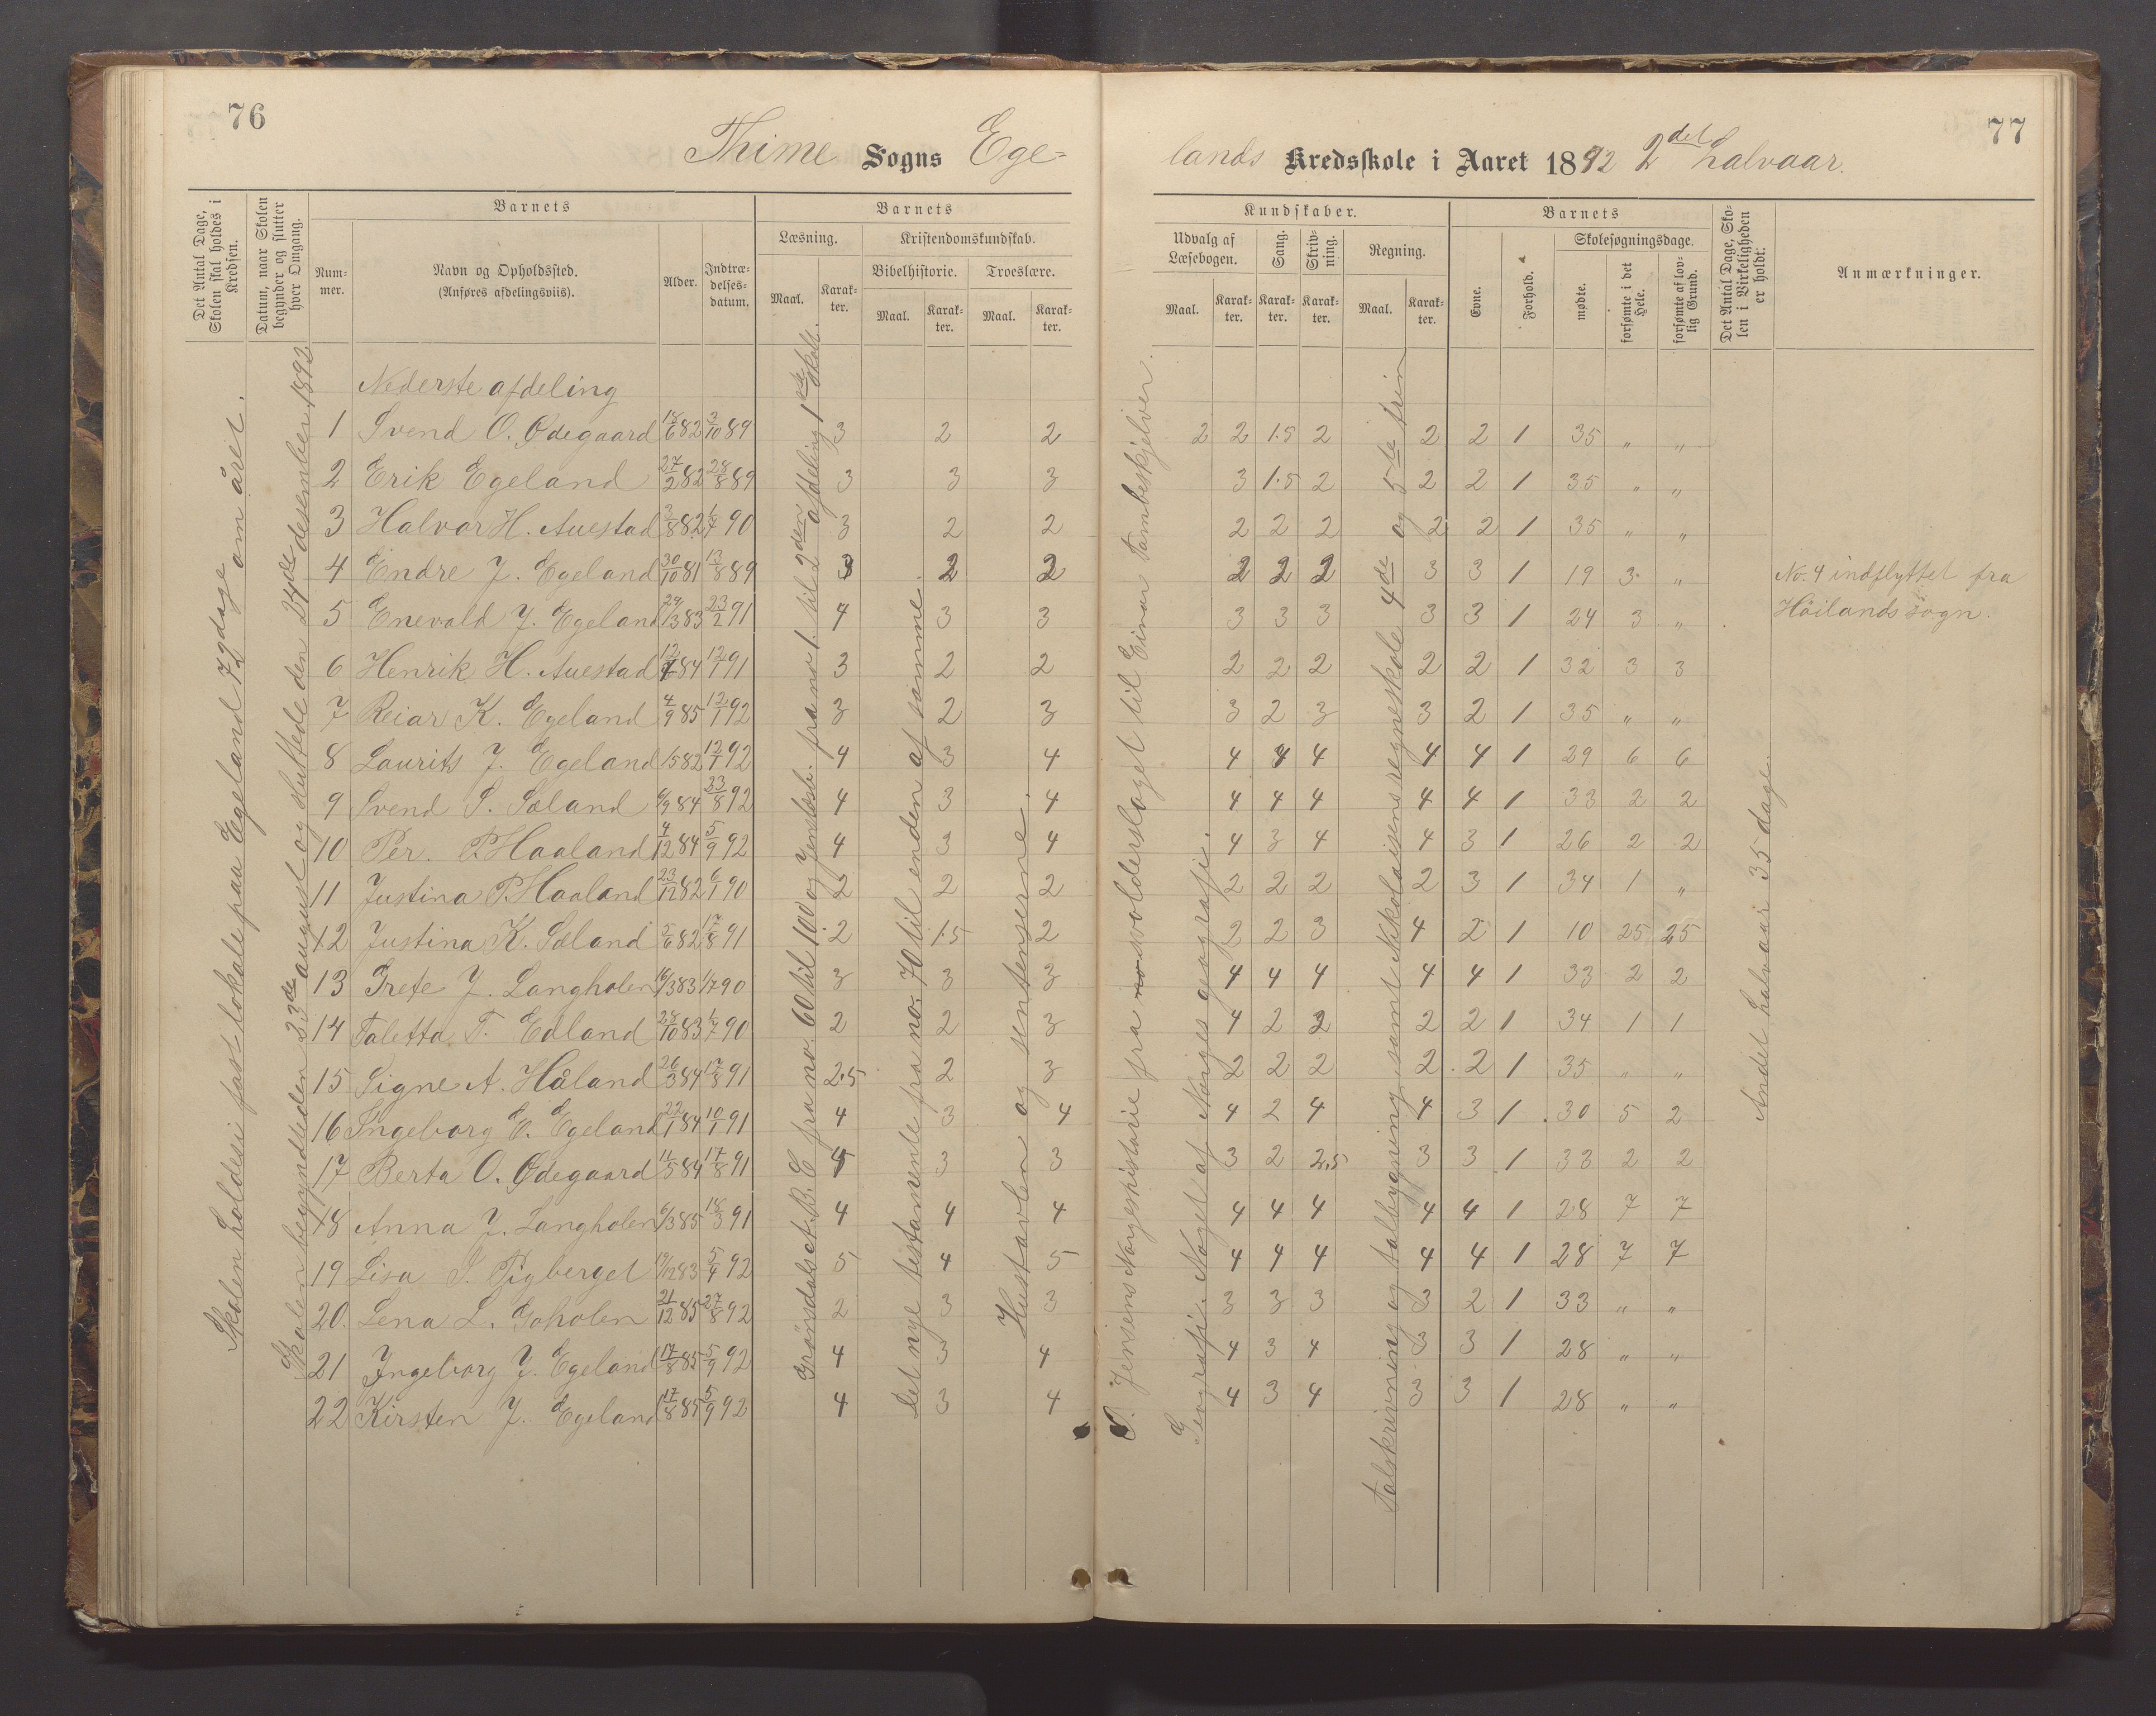 76
Thime Sogns Ege-
Det Antal Dage, Skolen skal holdes i Kredsen.
Datum, naar Skolen begynder og slutter hver Omgang.
Barnets
Num-mer.
Navn og Opholdssted.
(Anføres afdelingsviis).
Alder.
Indtræ-delses-datum.
Barnets
Læsning.
Maal.
Karak-ter.
Kristendomskundskab.
Bibelhistorie.
Maal.
Karak-ter.
Troeslære.
Maal.
Karak-ter.
Skolen holdes i fast lokale paa Egeland 72 dage om året.
Skolen begyndte den 23de august og sluttede den 24de desember 1892
Nederste afdeling
1 Svend O. Ødegaard 18/6 82 3/10 89 3 2 2
2 Erik Egeland 27/2 82 28/8 89 3 3 3
3 Halvor H. Auestad 3/8 82 1/7 90 3 2 2
4 Endre J. Egeland 30/10 81 13/8 89 3 2 2
5 Enevald J. Egeland 29/3 83 23/2 91 4 3 3
6 Henrik H. Auestad 84 12/1 91 3 2 2
7 Reiar K. Egeland 4/9 85 12/1 92 3 2 3
8 Laurits J. Egeland 82 12/1 92 4 3 4
9 Svend S. Sæland 6/9 84 23/8 92 4 3 4
10 Per. P. Haaland 4/12 84 5/9 92 4 3 4
11 Justina P. Haaland 23/12 82 6/1 90 2 2 2
12 Justina K. Sæland 5/6 82 17/8 91 2 1.5 2
13 Grete J. Langholen 16/3 83 1/7 90 3 3 3
14 Taletta T. Edland 28/10 83 1/7 90 2 2 3
15 Signe A. Håland 26/3 84 17/8 91 2.5 2 3
16 Ingeborg E. Egeland 22/1 84 10/1 91 4 3 4
17 Berta O. Ødegaard 11/5 84 17/8 91 4 3 3
18 Anna J. Langholen 6/3 85 18/3 91 4 4 4
19 Lisa S. Tigberget 19/12 83 5/4 92 5 4 5
20. Lena L. Goholen 21/12 85 27/8 92 2 3 3
21 Ingeborg J. Egeland 17/8 85 5/9 92 4 3 4
22 Kirsten J. Egeland 17/8 85 5/9 92 4 3 4
fra no. 1. til 2den afdeling 1ste skole.
Grøndals A.B.C fra no. 60 til 100 og Jentelæseb.
Det nye testamente fra no. 70 til enden af samme
Hustavlen og sentenserne.
77
lands Kredsskole i Aaret 1892 2det halvaar.
Kundskaber.
Udvalg af Læsebogen.
Maal.
Karak-ter.
Sang.
Karak-ter.
Skriv-ning.
Karak-ter.
Regning.
Maal.
Karak-ter.
Barnets
Evne.
Forhold.
Skolesøgningsdage.
mødte.
forsømte i det Hele.
forsømte af lov-lig Grund.
Det Antal Dage, Sko-len i Virkeligheden er holdt.
Anmærkninger.
2 2 1.5 2 2 2 1 35 " "
3 1.5 2 2 2 1 35 " "
2 2 2 2 2 1 35 " "
2 2 2 3 3 1 19 3 " No. 4 indflyttet fra
3 3 3 3 3 1 24 3 " Höilands sogn.
2 2 2 2 2 1 32 3 3
3 2 3 3 2 1 35 " "
4 4 4 4 4 1 29 6 6
4 4 4 4 4 1 33 2 2
4 3 4 4 3 1 26 2 2
2 2 2 2 3 1 34 1 "
2 2 3 4 2 1 10 25 25
4 4 4 4 4 1 33 2 2
4 2 2 2 2 1 34 1 1
2 2 2 2 2 1 35 " "
4 2 4 4 3 1 30 5 2
3 2 2.5 3 3 1 33 2 2
4 4 4 4 4 1 28 7 7
4 4 4 4 4 1 28 7 7
3 3 3 3 2 1 33 " "
4 3 4 3 3 1 28 " "
4 3 4 3 3 1 28 " "
Jensens Norgeshistorie fra no svolderslaget til Einar Tambeskjelver.
Geografi. Noget af Norges geografi.
Talskrivning og talbygning, samt Nikolaisens regneskole 4de og 5te trin
Andet halvaar 35 dage.